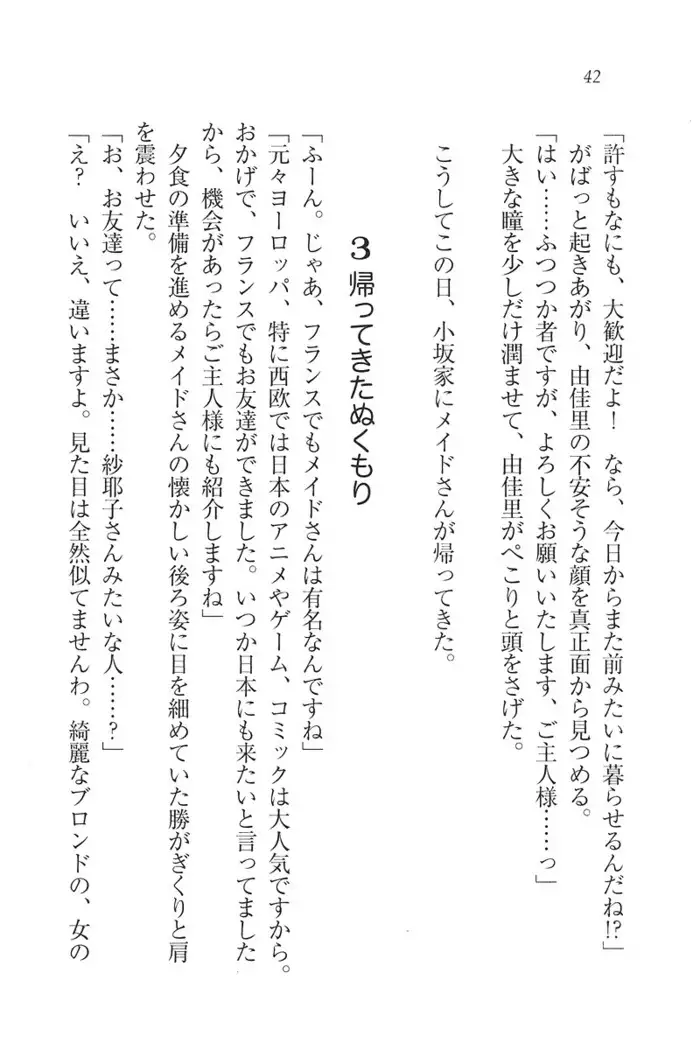 42
「許すもなにも、大歓迎だよ！　なら、今日からまた前みたいに暮らせるんだね!?」
がばっと起きあがり、由佳里の不安そうな顔を真正面から見つめる。
「はい……ふつつか者ですが、よろしくお願いいたします、ご主人様……っ」
大きな瞳を少しだけ潤ませて、由佳里がぺこりと頭をさげた。
こうしてこの日、小坂家にメイドさんが帰ってきた。
3 帰ってきたぬくもり
「ふーん。じゃあ、フランスでもメイドさんは有名なんですね」
「元々ヨーロッパ、特に西欧では日本のアニメやゲーム、コミックは大人気ですから。
おかげで、フランスでもお友達ができました。いつか日本にも来たいと言ってました
から、機会があったらご主人様にも紹介しますね」
夕食の準備を進めるメイドさんの懐かしい後ろ姿に目を細めていた勝がぎくりと肩
を震わせた。
「お、お友達って……まさか……紗耶子さんみたいな人……？」
「え？　いいえ、違いますよ。見た目は全然似てませんわ。綺麗なブロンドの、女の